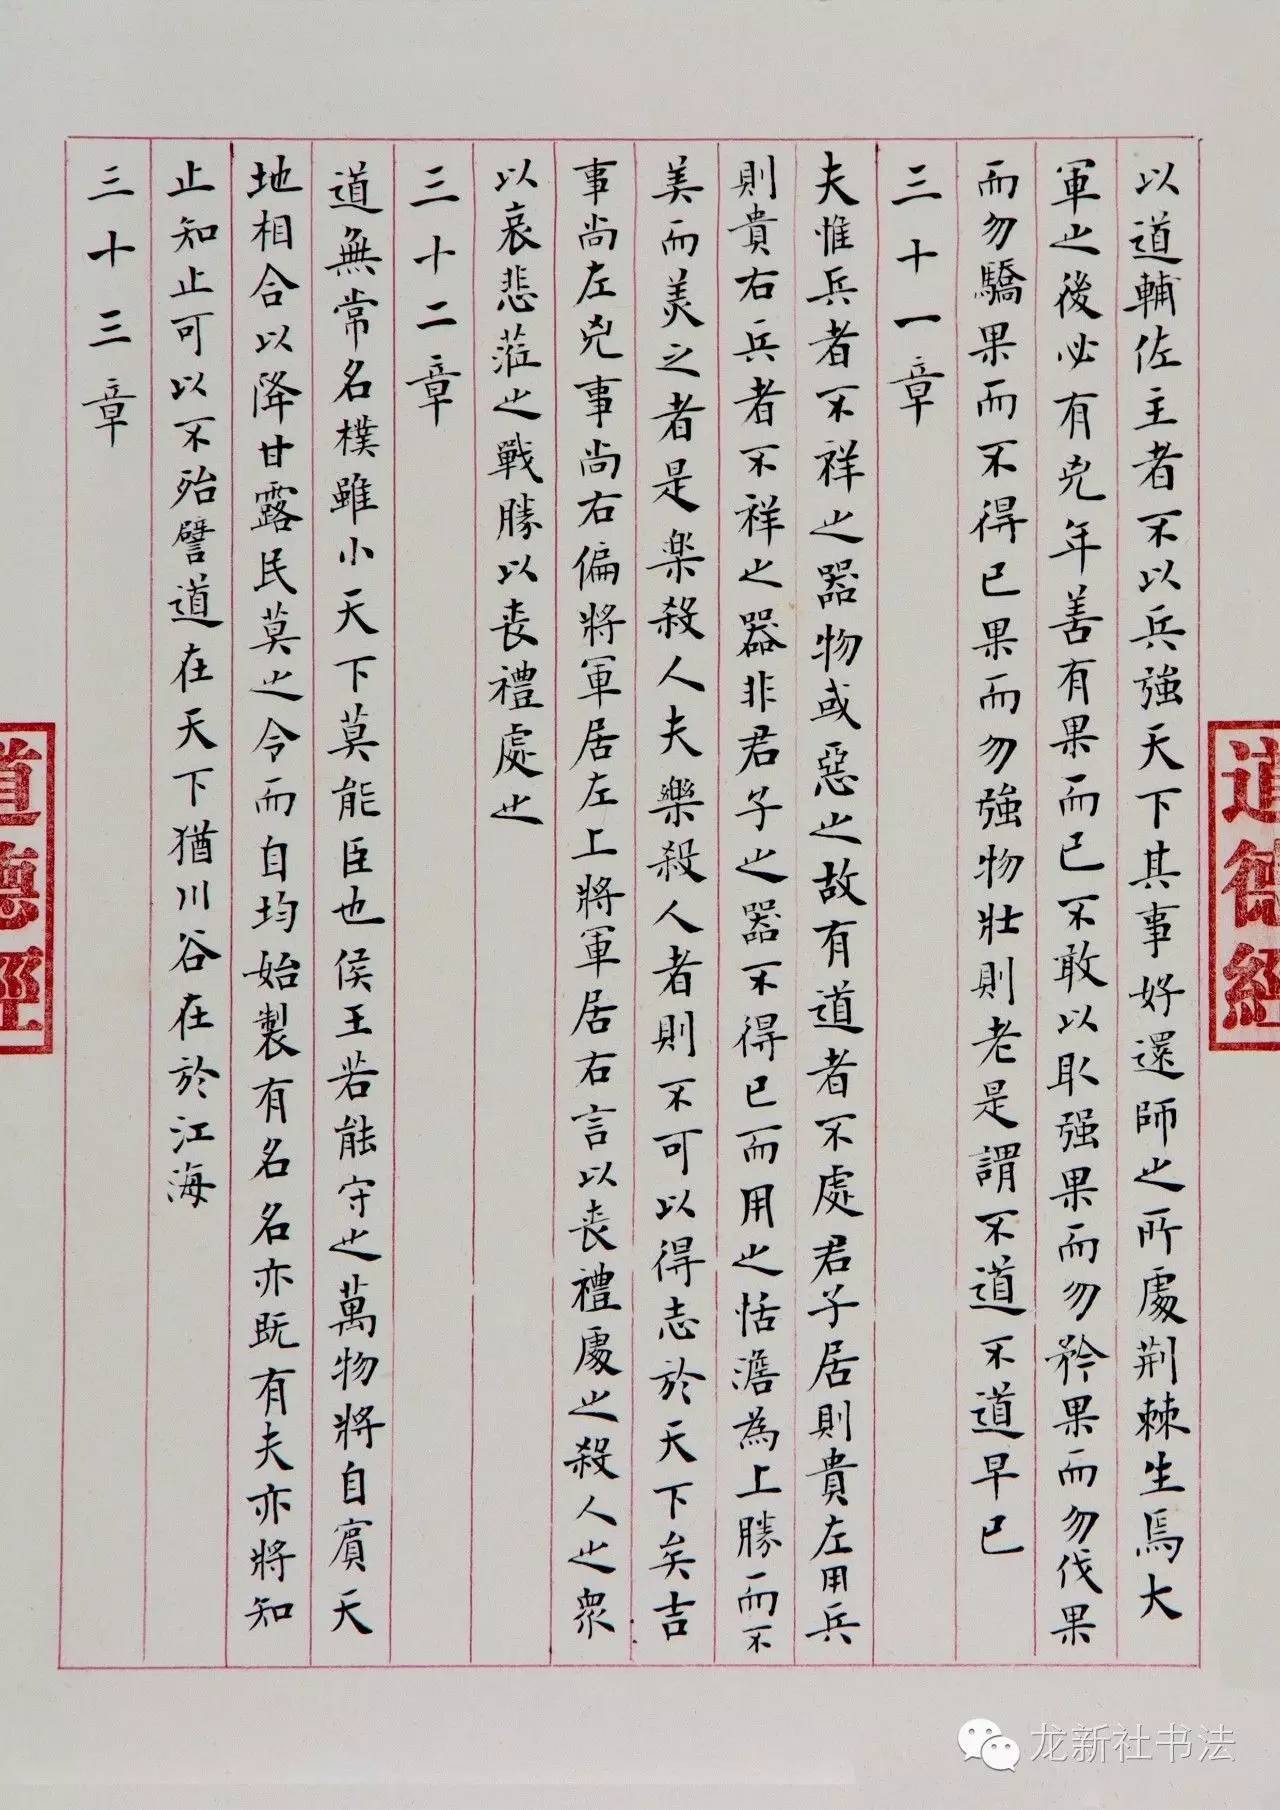 以道輔佐主者不以兵強天下其事好還師之所處荆棘生焉大
軍之後必有兇年善有果而已不敢以取强果而勿矜果而勿伐果
而勿驕果而不得已果而勿強物壯則老是謂不道不道早已
三十一章
夫惟兵者不祥之器物或惡之故有道者不處君子居則貴左用兵
則貴右兵者不祥之器非君子之器不得已而用之恬澹為上勝而不
美而美之者是楽殺人夫樂殺人者則不可以得志於天下矣吉
事尚左兇事尚右偏將軍居左上將軍居右言以喪禮處之殺人之眾
以哀悲蒞之戰勝以喪禮處之
三十二章
道無常名樸雖小天下莫能臣也侯王若能守之萬物將自賓天
地相合以降甘露民莫之令而自均始製有名名亦既有夫亦將知
止知止可以不殆譬道在天下猶川谷在於江海
三十三章
道德經
道德經
龙新社书法